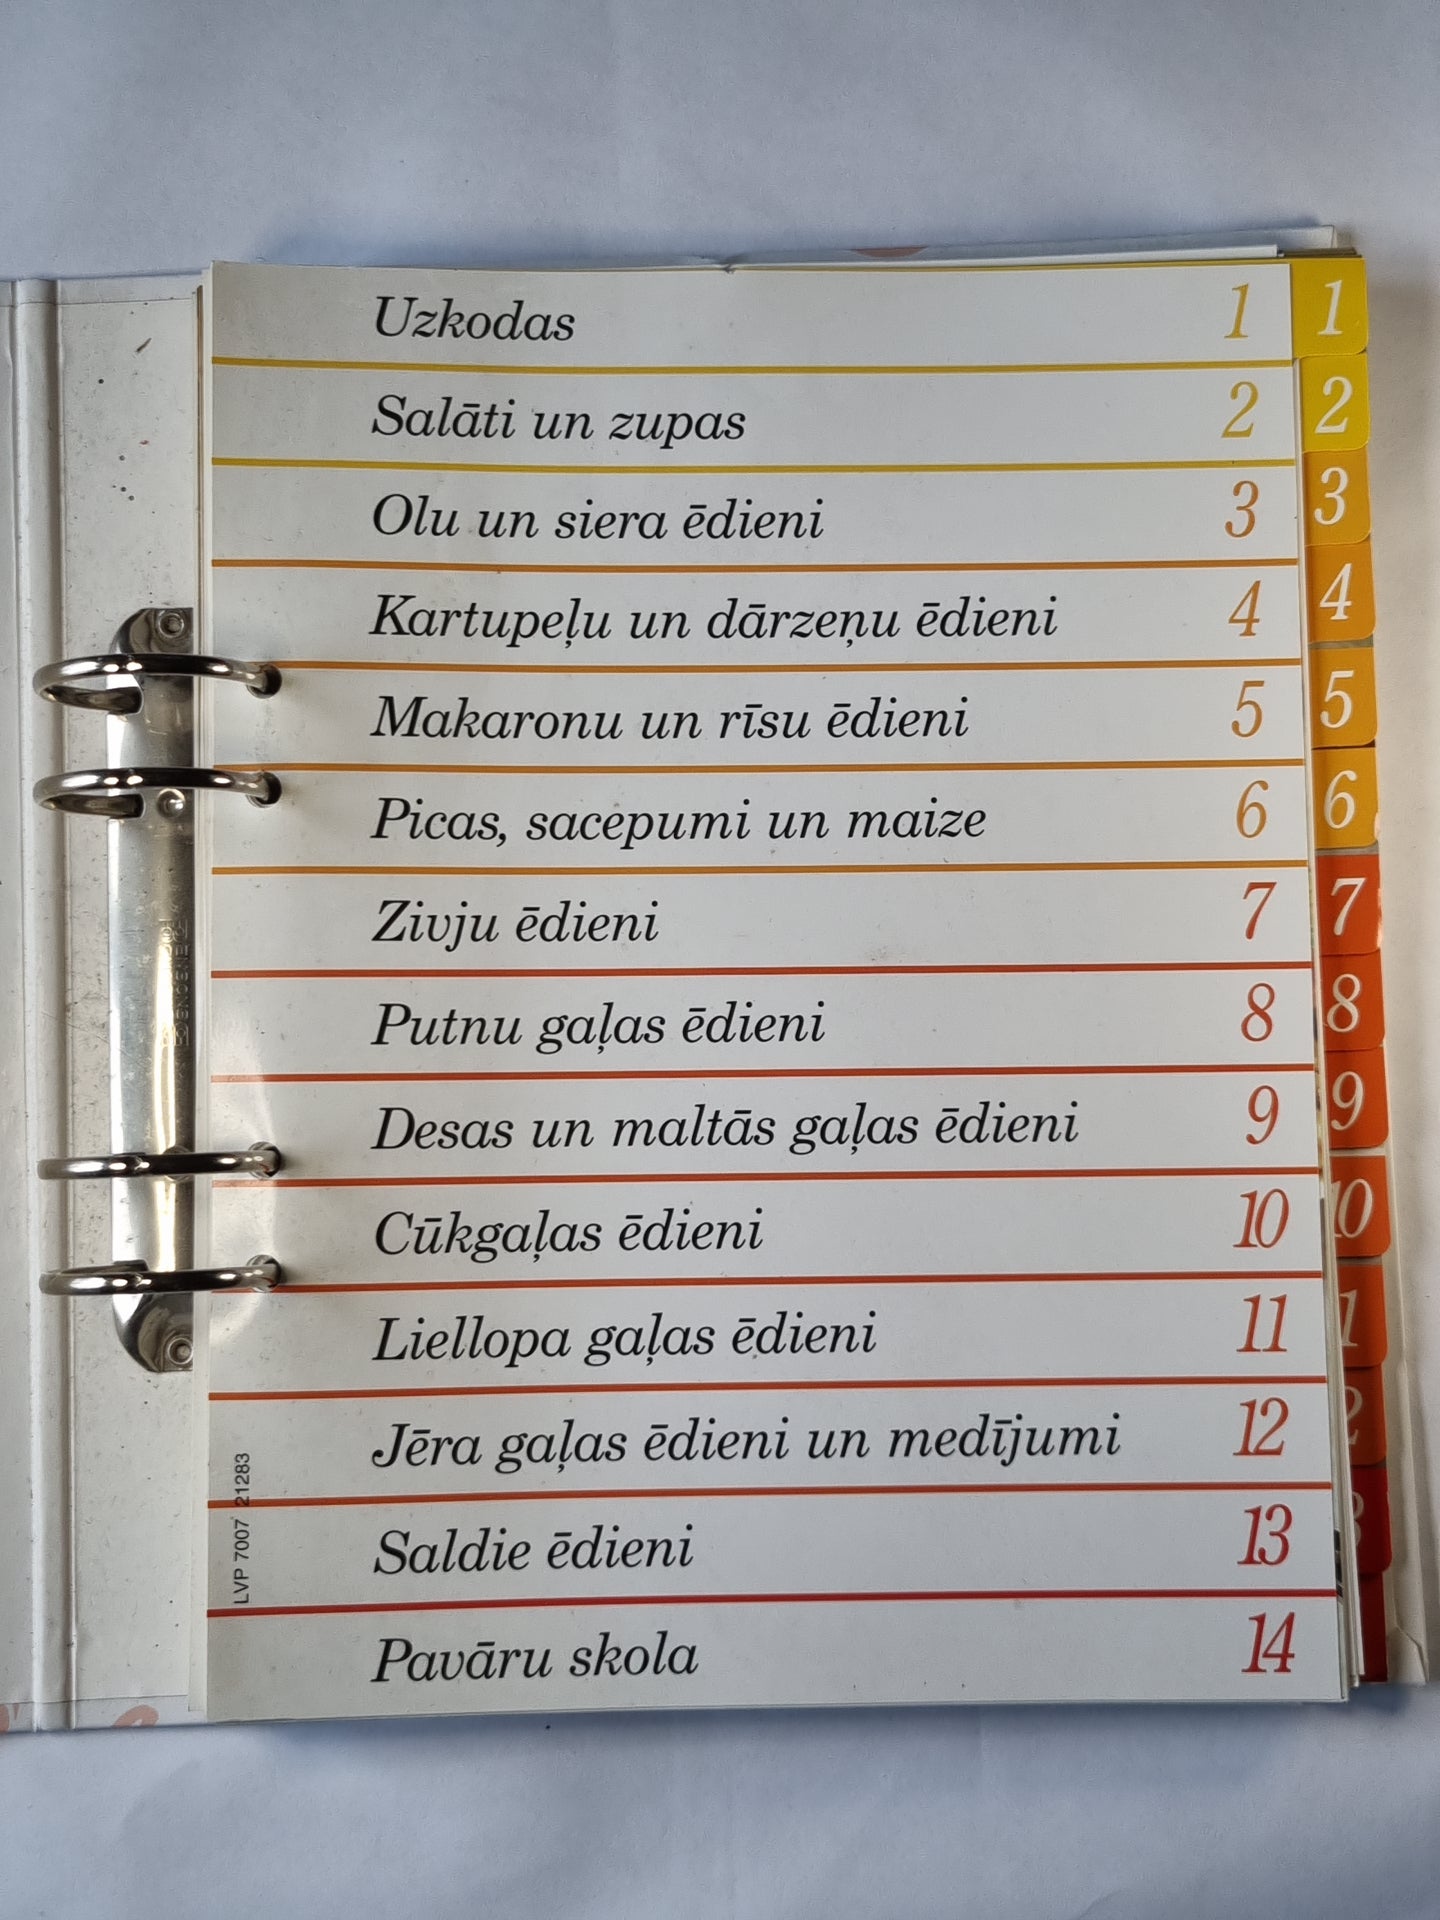 Uzkodas 1
Salāti un zupas 2
Olu un siera ēdieni 3
Kartupeļu un dārzeņu ēdieni 4
Makaronu un rīsu ēdieni 5
Picas, sacepumi un maize 6
Zivju ēdieni 7
Putnu gaļas ēdieni 8
Desas un maltās gaļas ēdieni 9
Cūkgaļas ēdieni 10
Liellopa gaļas ēdieni 11
Jēra gaļas ēdieni un medījumi 12
Saldie ēdieni 13
Pavāru skola 14
LVP 7007 21283
1
2
3
4
5
6
7
8
9
10
1
2
3